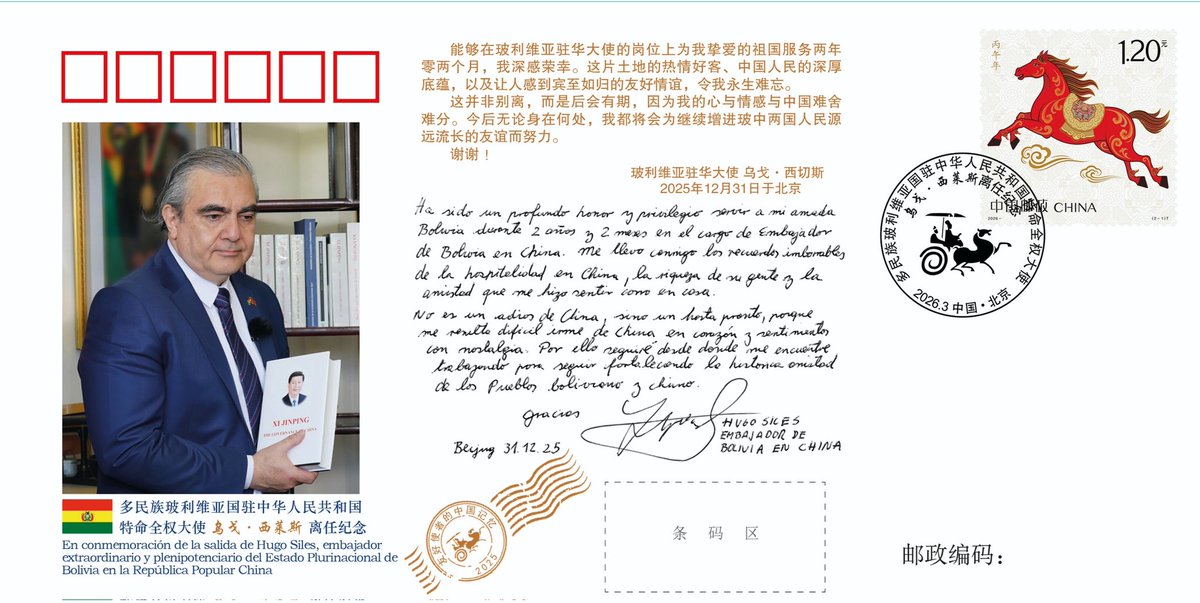 能够在玻利维亚驻华大使的岗位上为我挚爱的祖国服务两年
零两个月，我深感荣幸。这片土地的热情好客、中国人民的深厚
底蕴，以及让人感到宾至如归的友好情谊，令我永生难忘。
这并非别离，而是后会有期，因为我的心与情感与中国难舍
难分。今后无论身在何处，我都将会为继续增进玻中两国人民源
远流长的友谊而努力。
谢谢！
玻利维亚驻华大使 乌戈·西切斯
2025年12月31日于北京
Ha sido un profundo honor y privilegio servir a mi amada
Bolivia durante 2 años y 2 meses en el cargo de Embajador
de Bolivia en China. Me llevo conmigo los recuerdos imborrables
de la hospitalidad en China, la riqueza de su gente y la
amistad que me hizo sentir como en casa.
No es un adios de China, sino un hasta pronto, porque
me resulta dificil irme de China en corazón y sentimientos
con nostalgia. Por ello seguiré desde donde me encuentre
trabajando para seguir fortaleciendo la historica amistad
de los Pueblos boliviano y chino.
gracias
HUGO SILES
EMBAJADOR DE
BOLIVIA EN CHINA
Beijing 31.12.25
XI JINPING
THE GOVERNANCE OF CHINA
多民族玻利维亚国驻中华人民共和国
特命全权大使 乌戈·西莱斯 离任纪念
En conmemoración de la salida de Hugo Siles, embajador
extraordinario y plenipotenciario del Estado Plurinacional de
Bolivia en la República Popular China
友好使者的中国记忆
2025
条码区
邮政编码：
丙午年
1.20元
中国邮政 CHINA
2026-
(2-1)T
多民族玻利维亚国驻中华人民共和国特命全权大使
乌戈·西莱斯离任纪念
2026.3 中国·北京